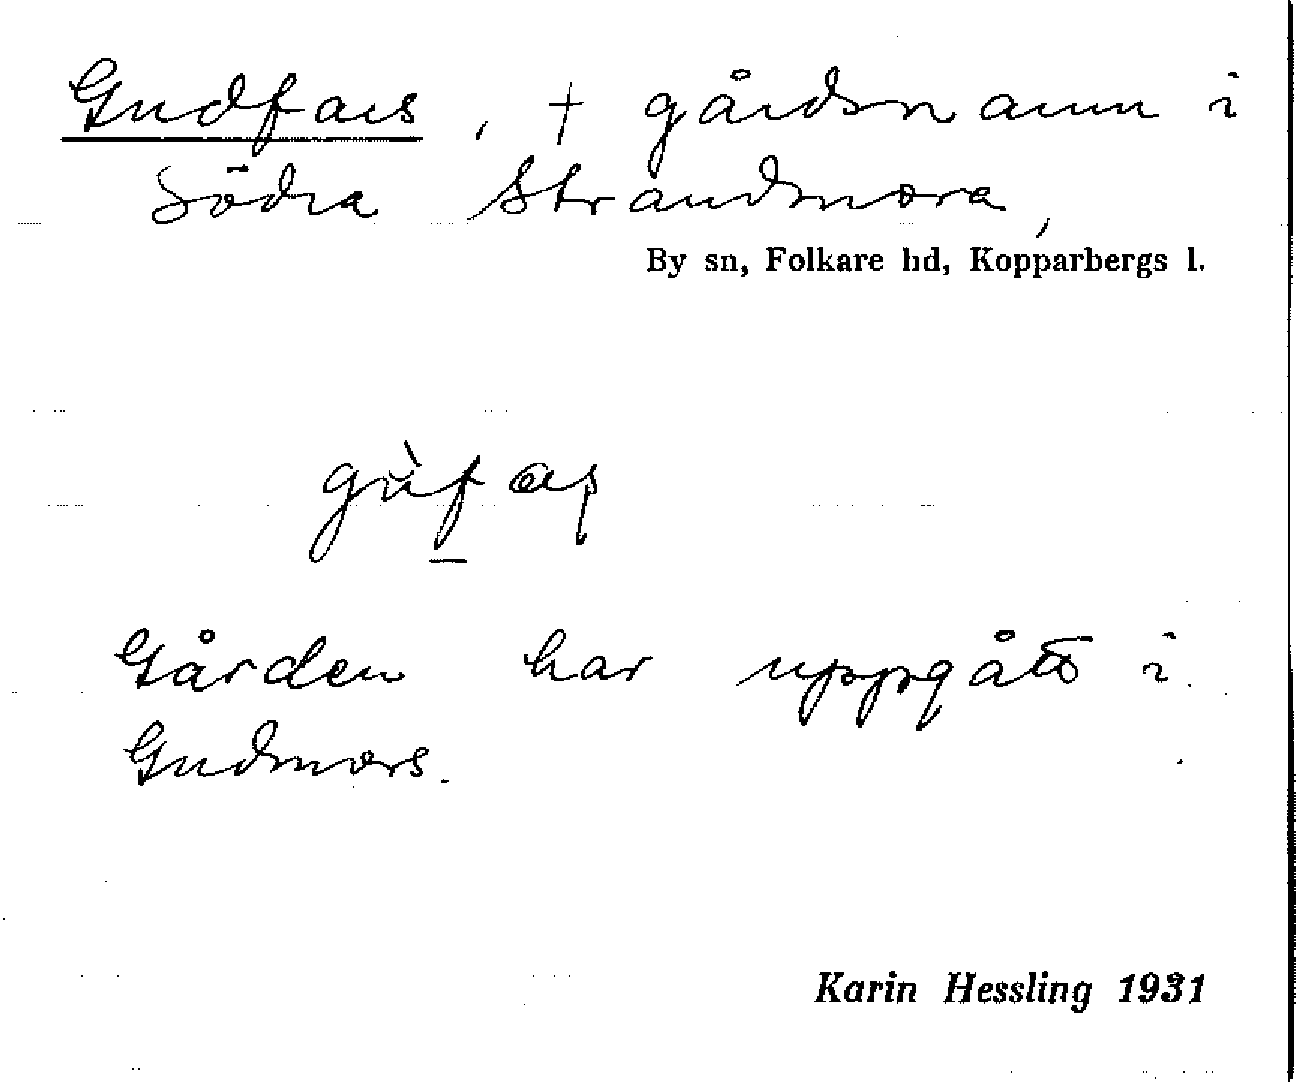 Gudfars, † gårdsnamn i
Södra Strandmora,
By sn, Folkare hd, Kopparbergs l.
Gården har uppgått i
Gudmors.
Karin Hessling 1931